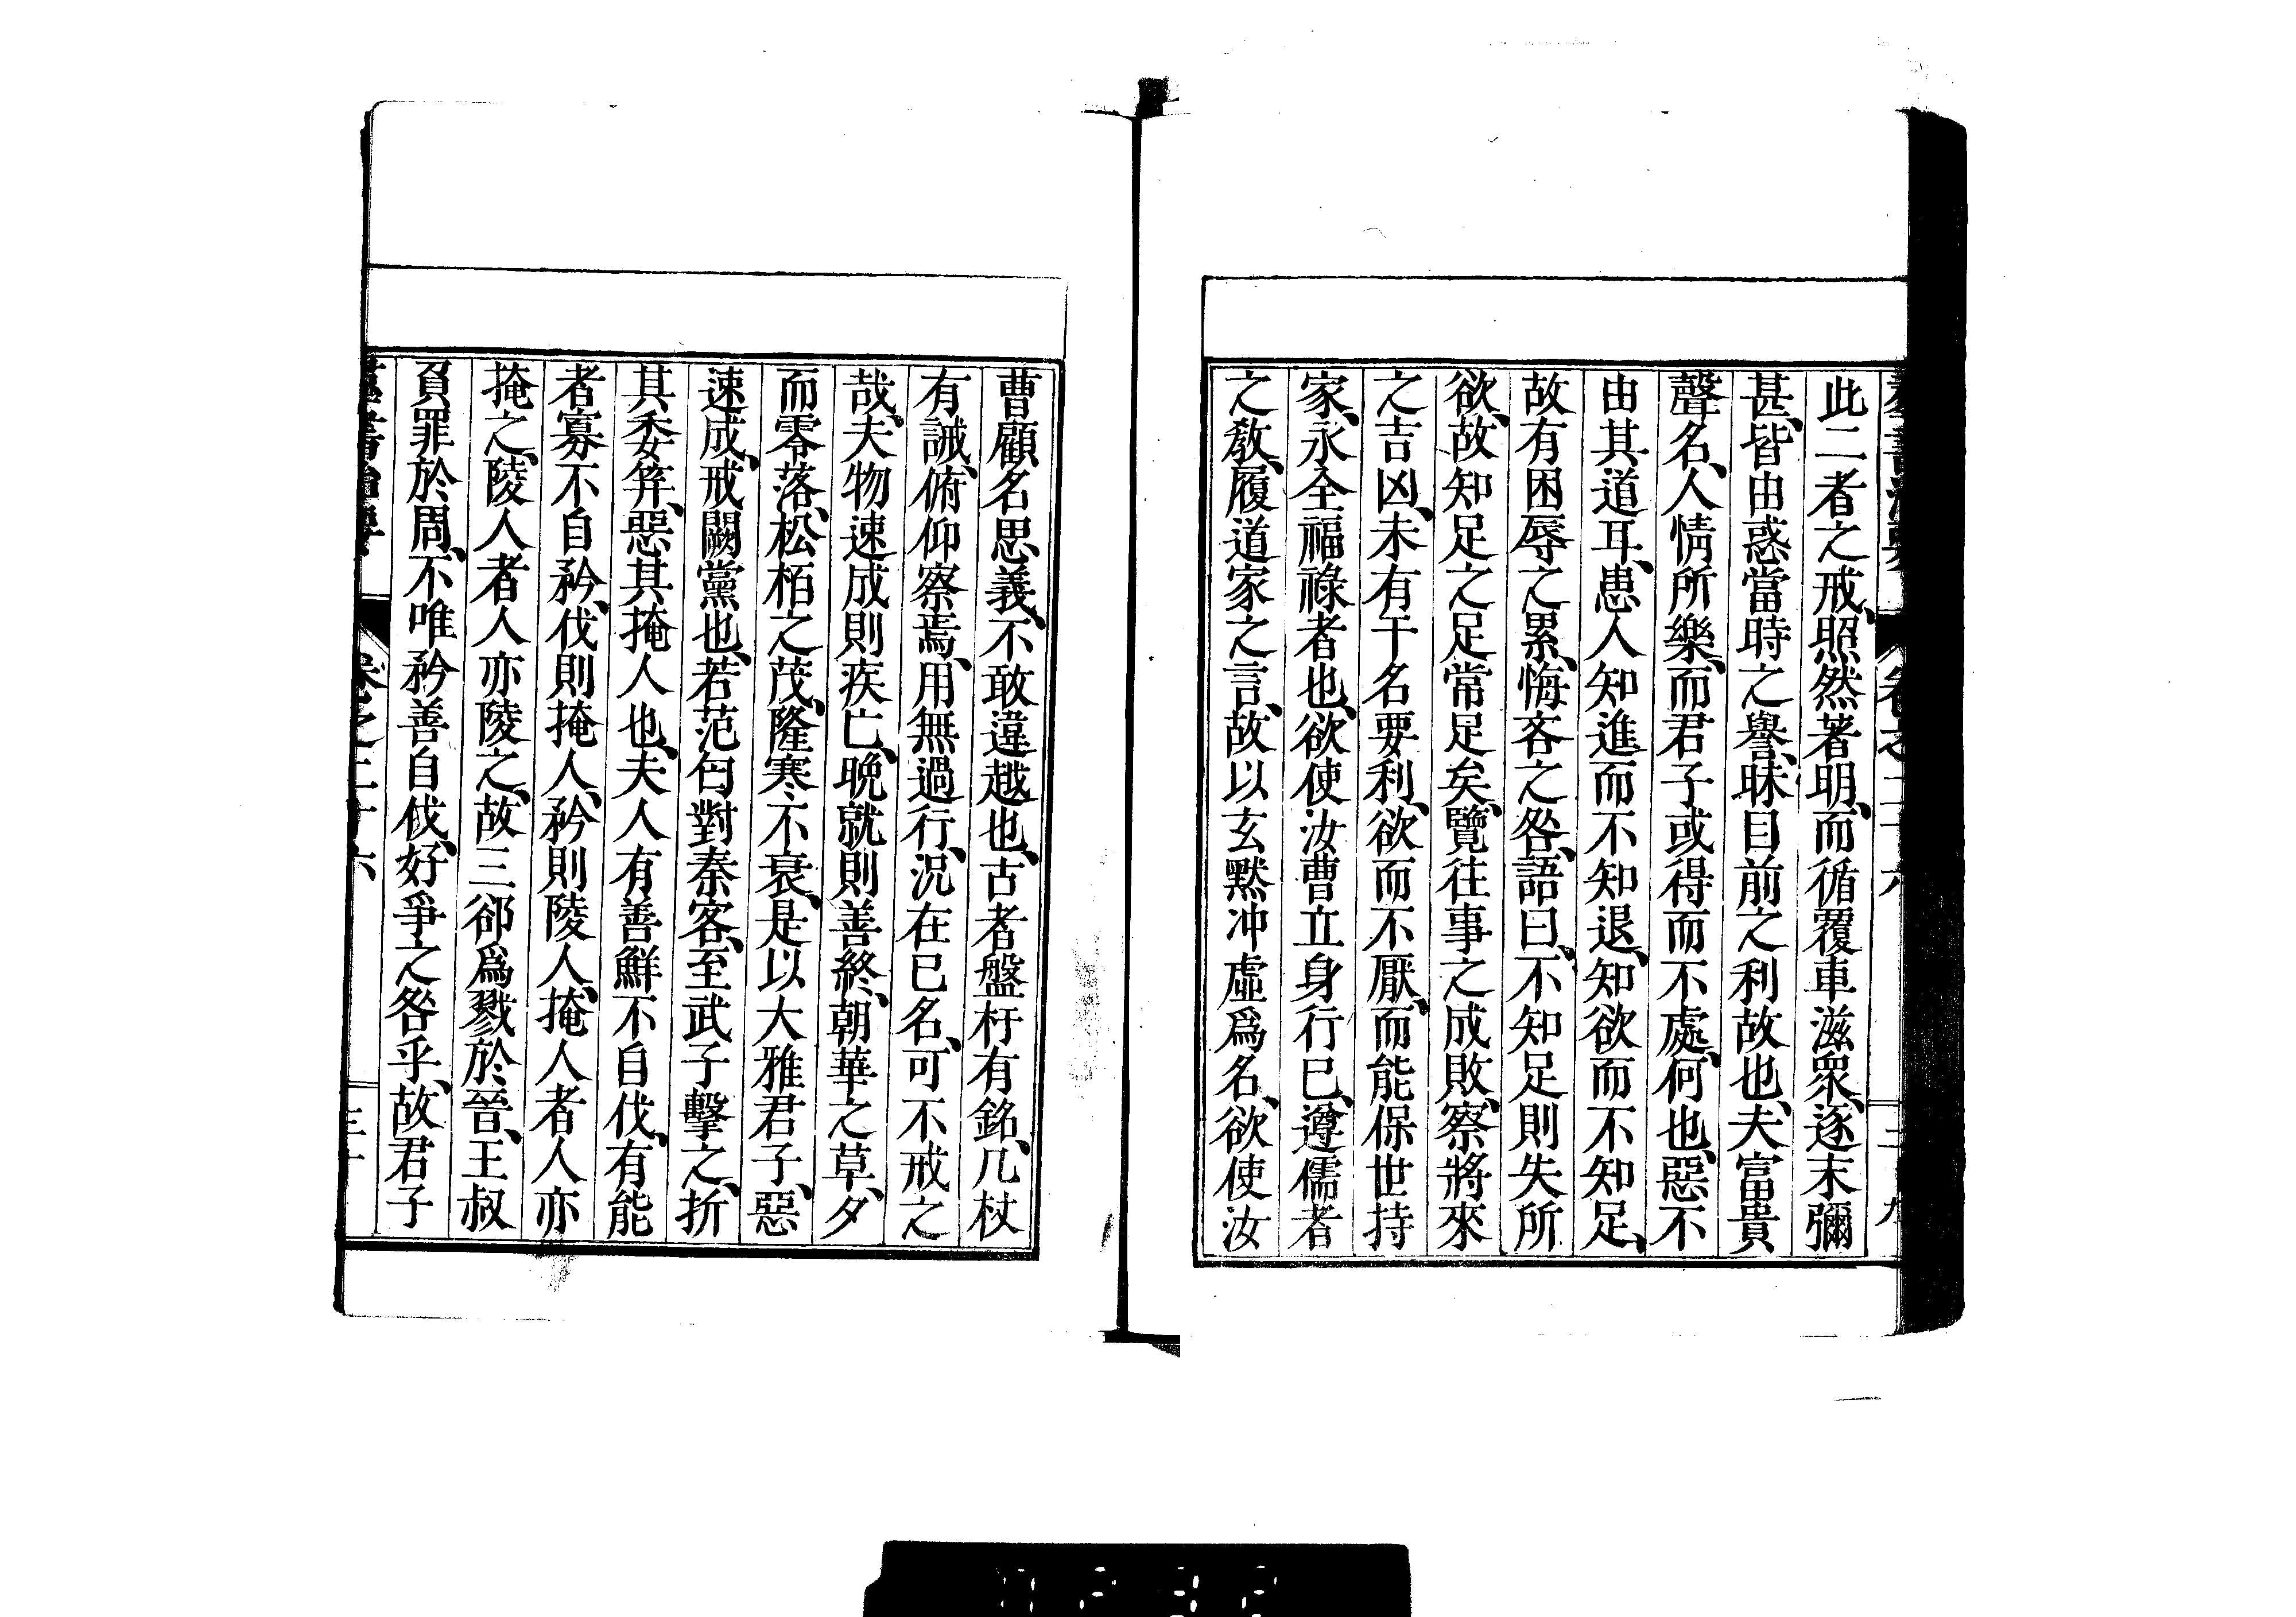 羣書治要 卷之二十六 二十九
此二者之戒、照然著明、而循覆車滋衆、逐末彌
甚、皆由惑當時之譽、昧目前之利故也、夫富貴
聲名、人情所樂、而君子或得而不處、何也、惡不
由其道耳、患人知進而不知退、知欲而不知足、
故有困辱之累、悔吝之咎、語曰、不知足則失所
欲、故知足之足常足矣、覽往事之成敗、察將來
之吉凶、未有干名要利、欲而不厭、而能保世持
家、永全福祿者也、欲使汝曹立身行已、遵儒者
之敎、履道家之言、故以玄默冲虛爲名、欲使汝
曹顧名思義、不敢違越也、古者盤杅有銘、几杖
有誡、俯仰察焉、用無過行、況在已名、可不戒之
哉、夫物速成則疾亡、晩就則善終、朝華之草、夕
而零落、松栢之茂、隆寒不衰、是以大雅君子、惡
速成、戒闕黨也、若范匄對秦客、至武子擊之、折
其委笄、惡其掩人也、夫人有善鮮不自伐、有能
者寡不自矜、伐則掩人、矜則陵人、掩人者人亦
掩之、陵人者人亦陵之、故三郤爲戮於晉、王叔
負罪於周、不唯矜善自伐、好爭之咎乎、故君子
羣書治要 卷之二十六 三十